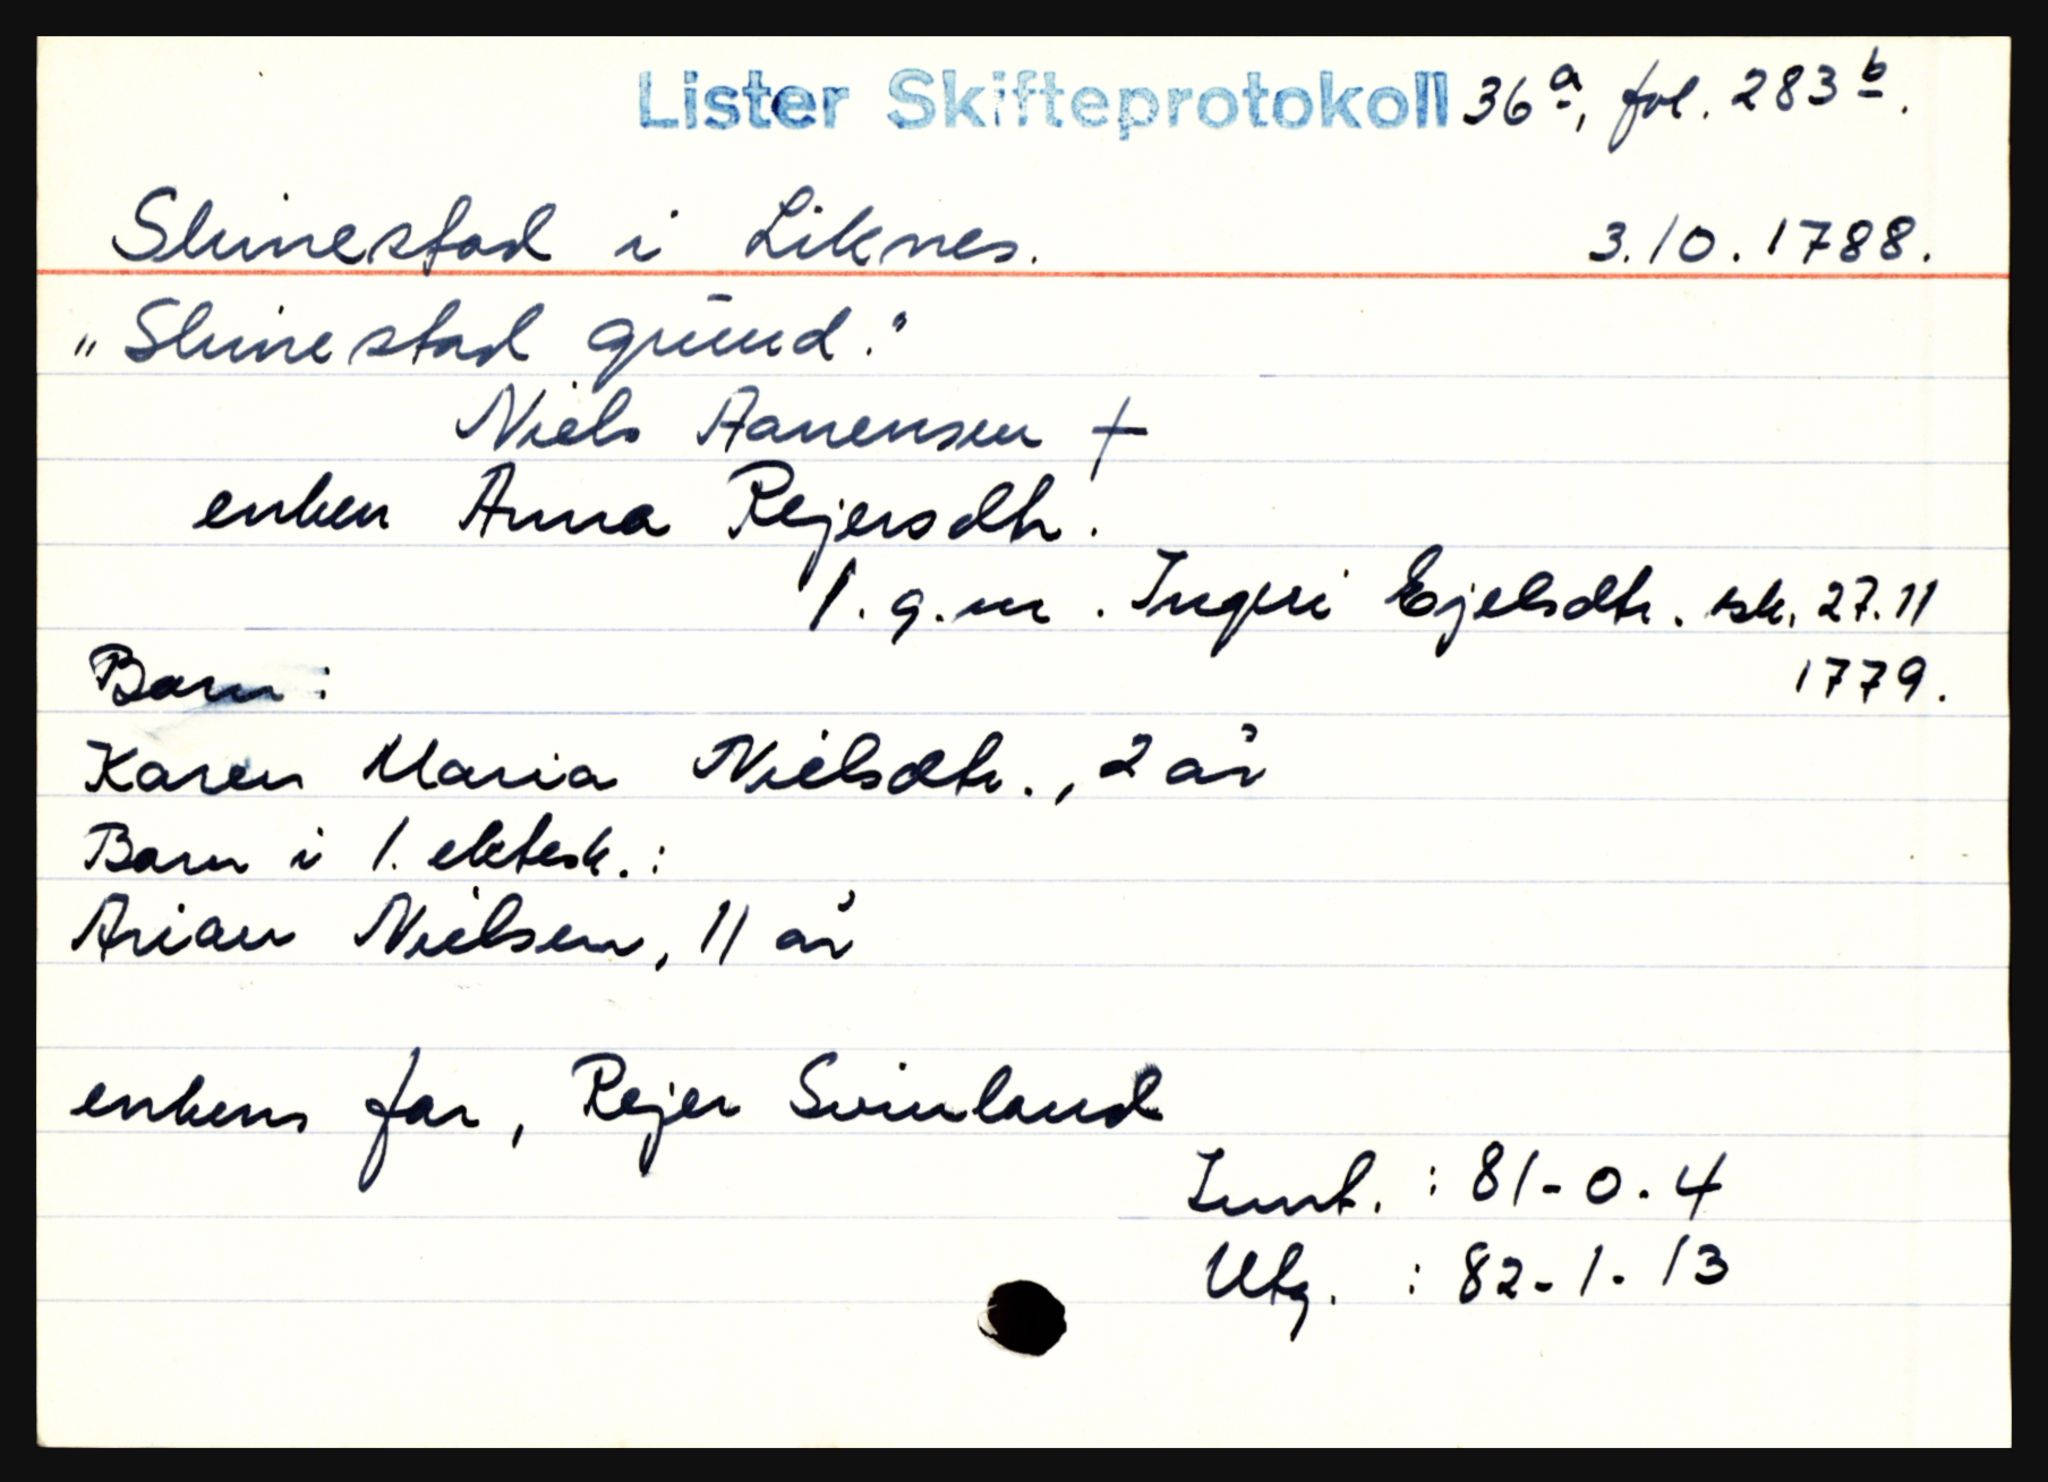 Lister Skifteprotokoll 36a, fol. 283b.
Slimestad i Liknes. 3.10.1788.
„Slimestad grund."
Niels Aanensen †
enken Anna Rejersdtr.
1. g.m. Ingri Ejelsdtr. sk. 27.11
Barn: 1779.
Karen Maria Nielsdtr., 2 år
Barn i 1. ektesk.:
Arian Nielsen, 11 år
enkens far, Rejer Svinland
Innt. : 81-0-4
Utg. : 82-1-13